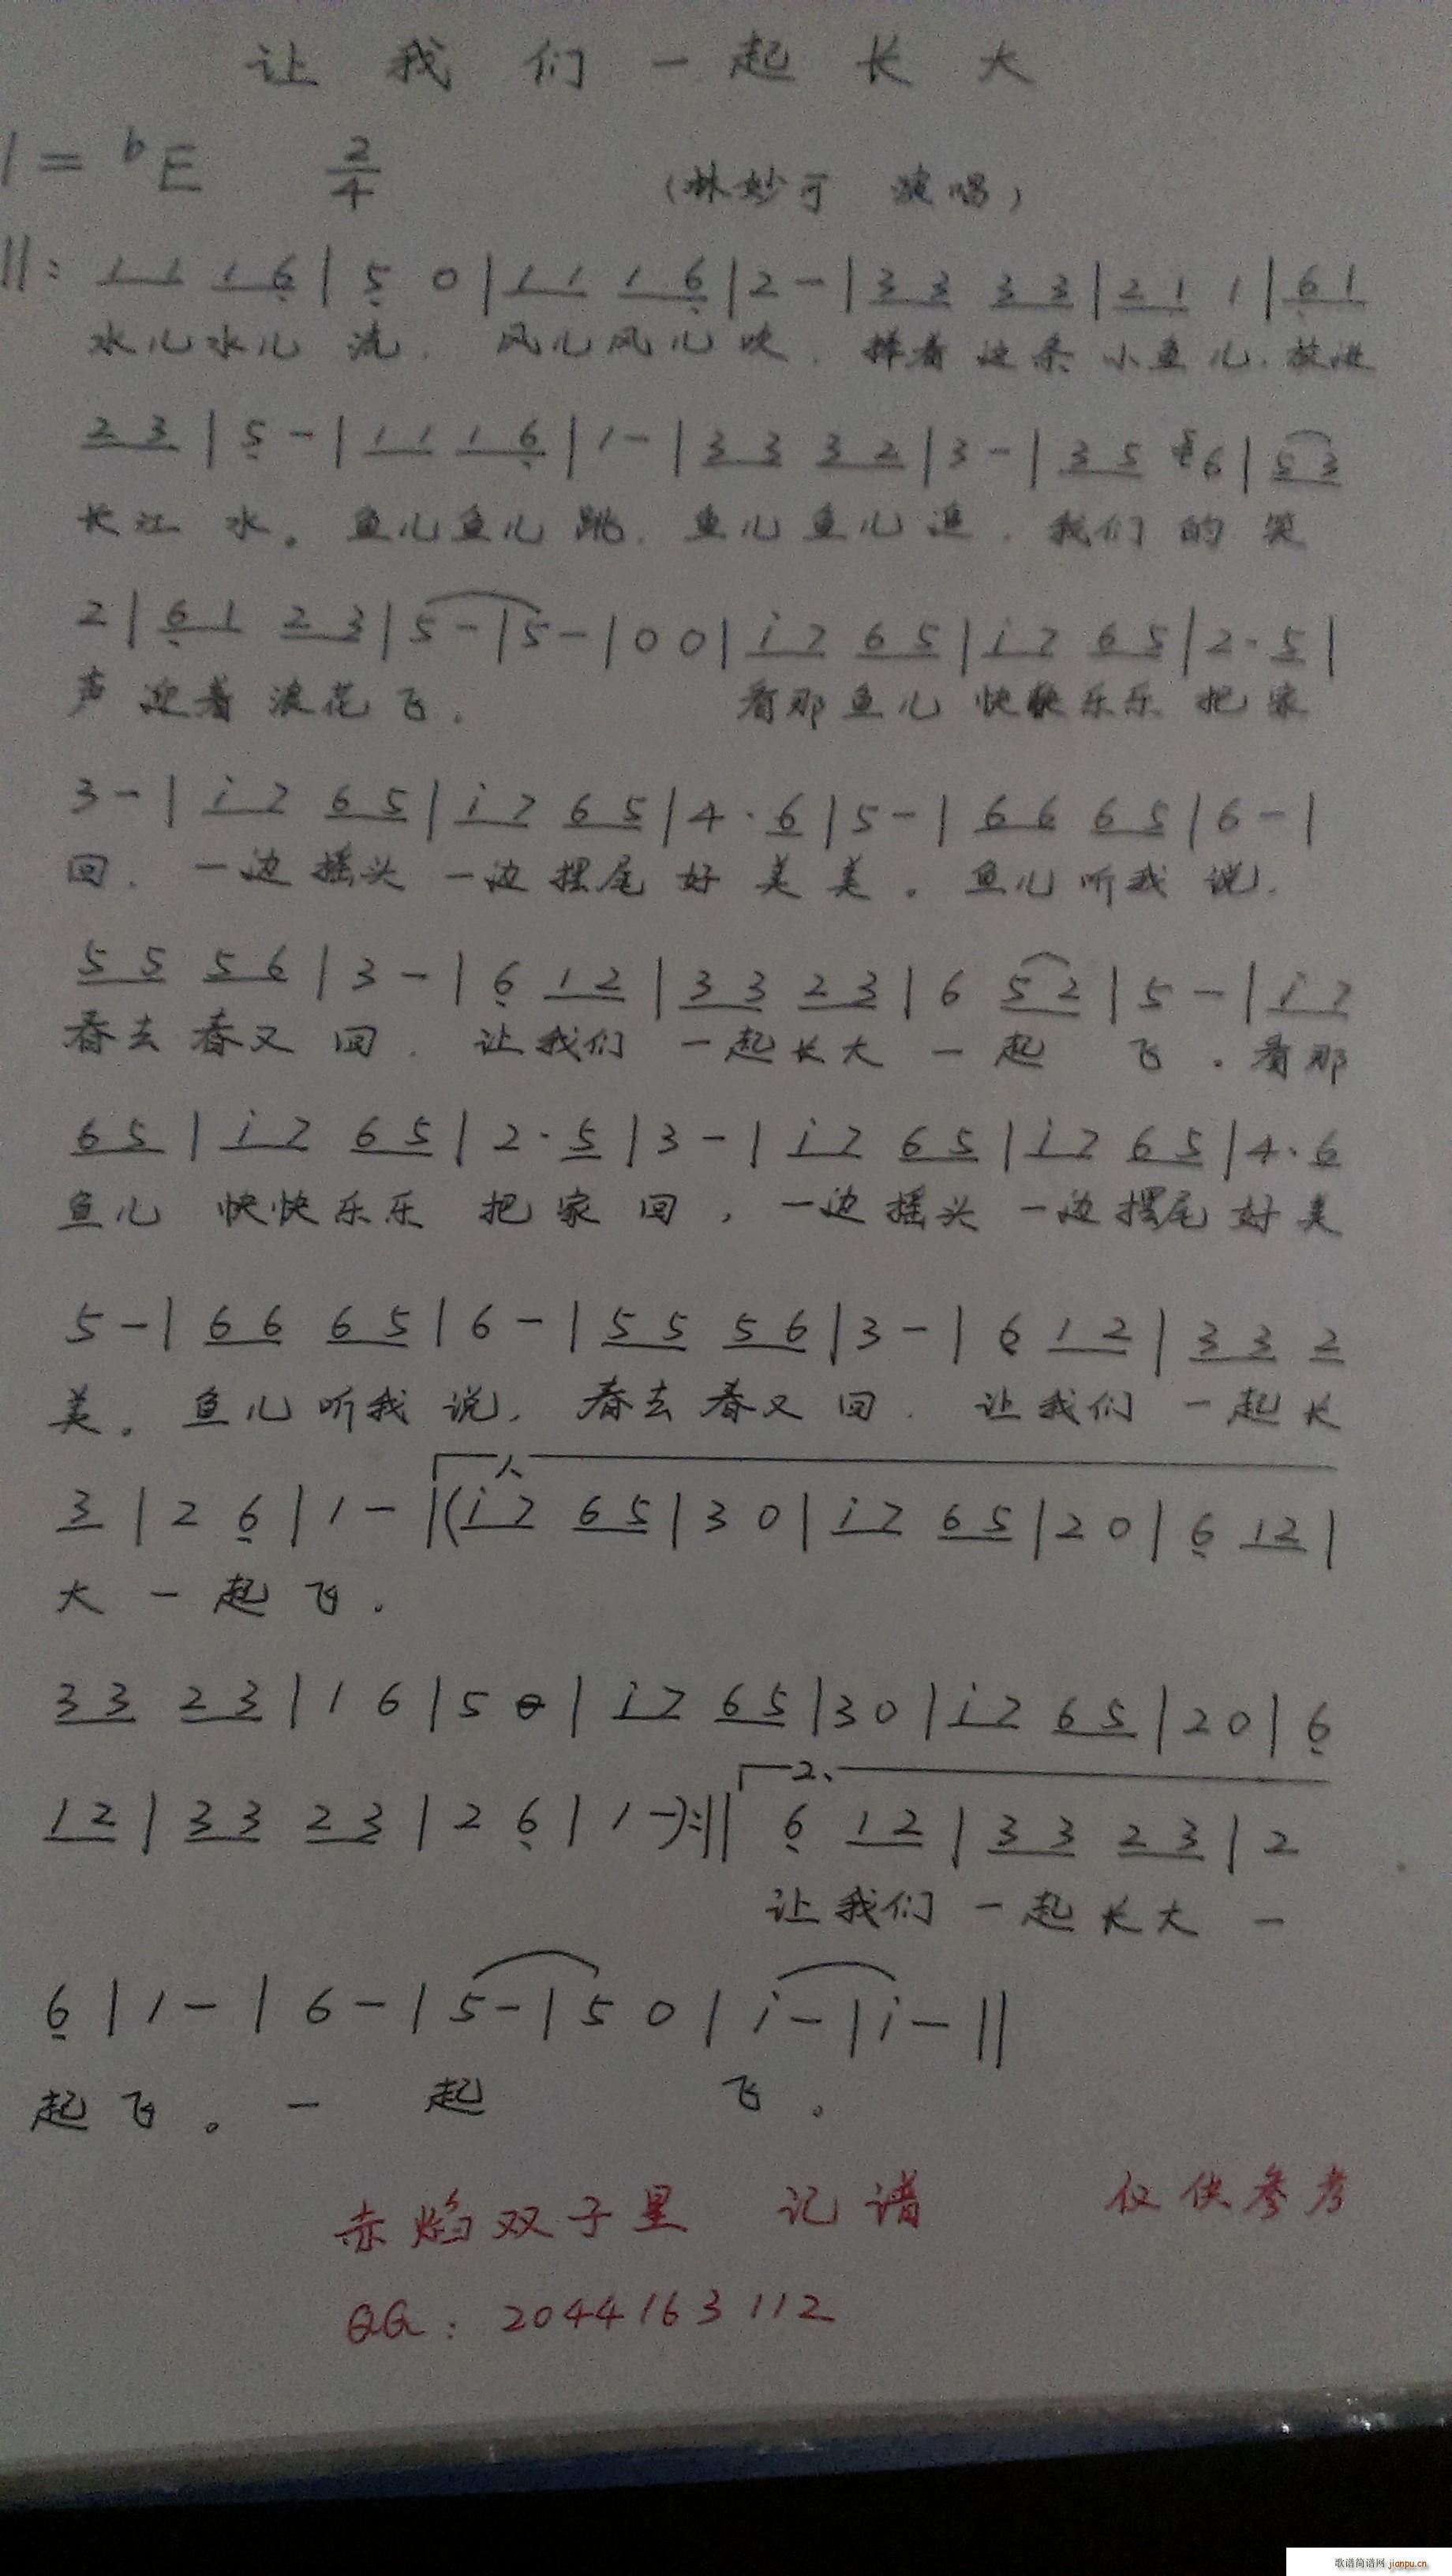 让我们一起长大
1=bE 2/4 (林妙可 演唱)
||: 1 1 1 6 | 5 0 | 1 1 1 6 | 2 - | 3 3 3 3 | 2 1 1 | 6 1
水儿水儿 流. 风儿风儿吹. 捧着这条小鱼儿. 放进
2 3 | 5 - | 1 1 1 6 | 1 - | 3 3 3 2 | 3 - | 3 5 6 | 5 3
长江 水。鱼儿鱼儿 跳. 鱼儿鱼儿追. 我们 的 笑
2 | 6 1 2 3 | 5 - | 5 - | 0 0 | i 7 6 5 | i 7 6 5 | 2 · 5 |
声 迎着 浪花飞. 看那鱼儿 快快乐乐 把 家
3 - | i 7 6 5 | i 7 6 5 | 4 · 6 | 5 - | 6 6 6 5 | 6 - |
回. 一边摇头 一边摆尾 好 美 美。鱼儿听我 说.
5 5 5 6 | 3 - | 6 1 2 | 3 3 2 3 | 6 5 2 | 5 - | i 7
春去春又 回. 让我们 一起长大 一 起 飞. 看那
6 5 | i 7 6 5 | 2 · 5 | 3 - | i 7 6 5 | i 7 6 5 | 4 · 6
鱼儿 快快乐乐 把 家 回, 一边摇头 一边摆尾 好 美
5 - | 6 6 6 5 | 6 - | 5 5 5 6 | 3 - | 6 1 2 | 3 3 2
美。鱼儿听我 说, 春去春又 回. 让我们 一起长
1、
3 | 2 6 | 1 - |( i 7 6 5 | 3 0 | i 7 6 5 | 2 0 | 6 1 2 |
大 一 起 飞.
3 3 2 3 | 1 6 | 5 0 | i 7 6 5 | 3 0 | i 7 6 5 | 2 0 | 6
2、
1 2 | 3 3 2 3 | 2 6 | 1 - ):|| 6 1 2 | 3 3 2 3 | 2
让我们 一起长大 一
6 | 1 - | 6 - | 5 - | 5 0 | i - | i - ||
起飞。一 起 飞。
赤焰双子星 记谱 仅供参考
QQ:2044163112
歌谱简谱网 jianpu.cn